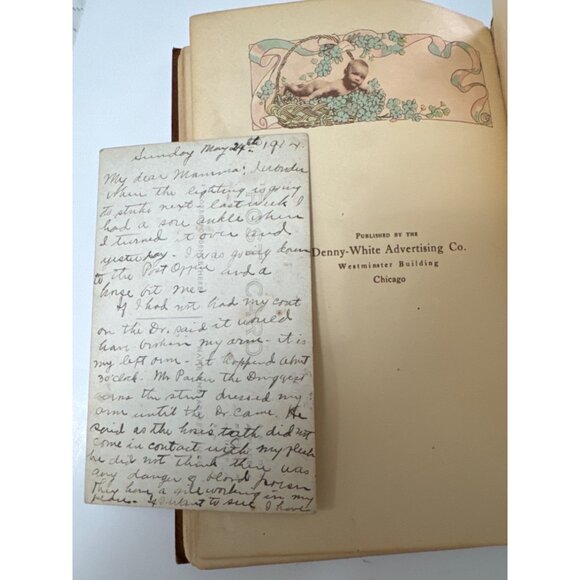 Sunday May 24th 1914.
My dear Mamma; I wonder
when the lighting is going
to strike next - last week I
had a sore ankle when
I turned it over and
yesterday - I was going down
to the Post Office and a
horse bit me -
If I had not had my coat
on the Dr. said it would
have broken my arm - it is
my left arm - it happend about
3 o'clock. Mr Parker the Druggest
across the street dressed my
arm until the Dr. came. He
said as the horse's teeth did not
come in contact with my flesh
he did not think there was
any danger of blood poison
they have a girl working in my
place - 4 I have
POST CARD
PUBLISHED BY THE
Denny-White Advertising Co.
Westminster Building
Chicago